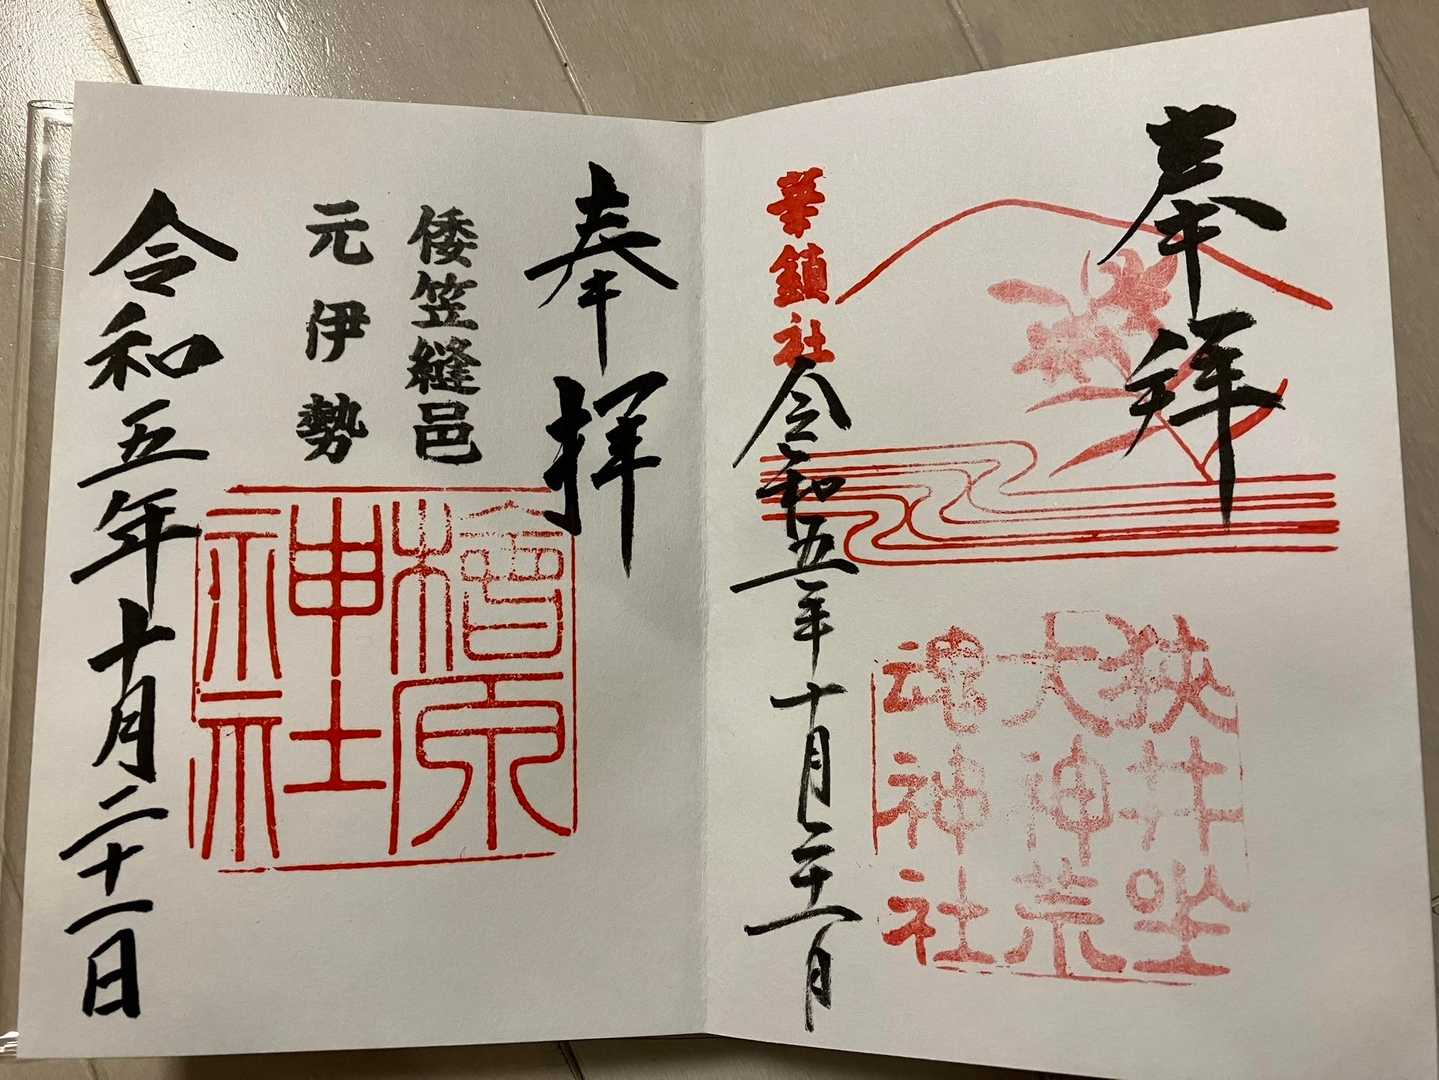 奉拝
狭井坐
大神荒
魂神社
華鎮社
令和五年十月二十一日
奉拝
倭笠縫邑
元伊勢
檜原
神社
令和五年十月二十一日